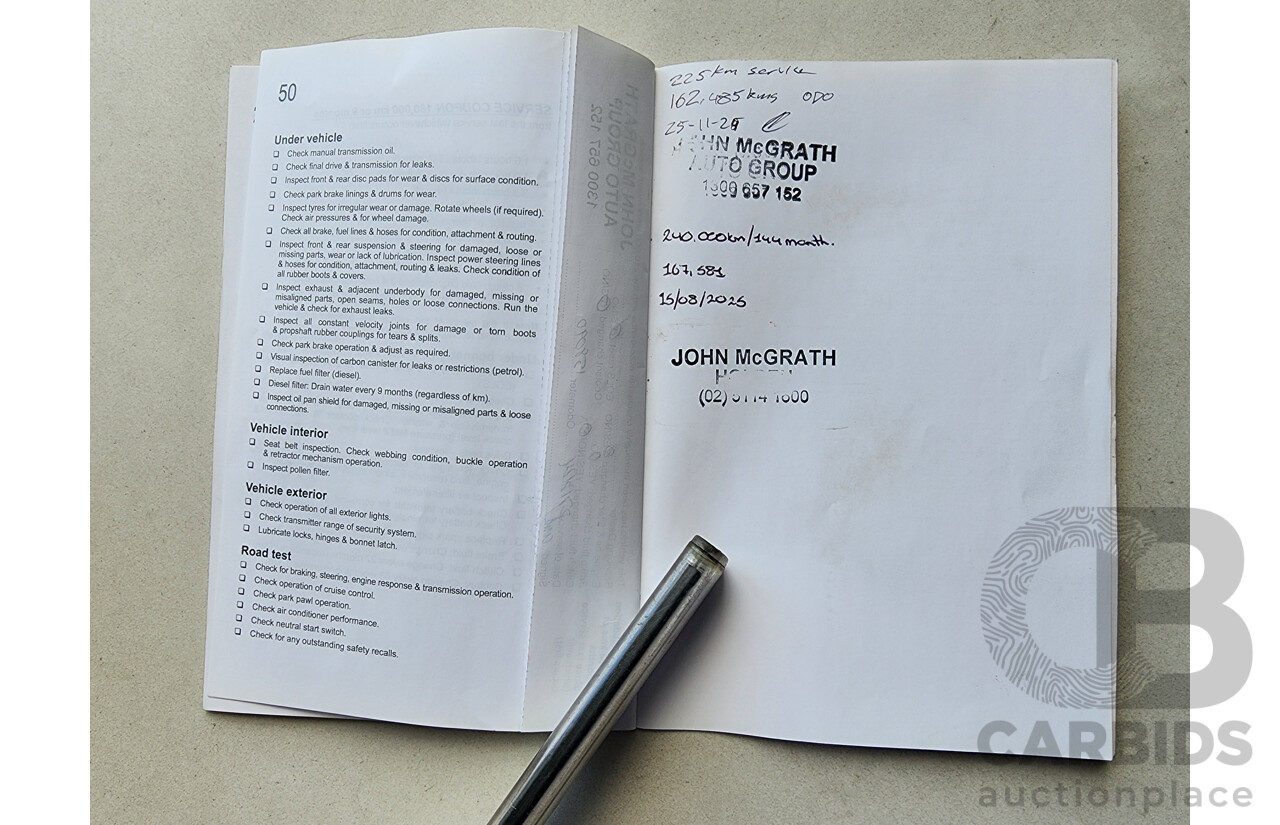 50
Under vehicle
❑ Check manual transmission oil.
❑ Check final drive & transmission for leaks.
❑ Inspect front & rear disc pads for wear & discs for surface condition.
❑ Check park brake linings & drums for wear.
❑ Inspect tyres for irregular wear or damage. Rotate wheels (if required).
Check air pressures & for wheel damage.
❑ Check all brake, fuel lines & hoses for condition, attachment & routing.
❑ Inspect front & rear suspension & steering for damaged, loose or
missing parts, wear or lack of lubrication. Inspect power steering lines
& hoses for condition, attachment, routing & leaks. Check condition of
all rubber boots & covers.
❑ Inspect exhaust & adjacent underbody for damaged, missing or
misaligned parts, open seams, holes or loose connections. Run the
vehicle & check for exhaust leaks.
❑ Inspect all constant velocity joints for damage or torn boots
& propshaft rubber couplings for tears & splits.
❑ Check park brake operation & adjust as required.
❑ Visual inspection of carbon canister for leaks or restrictions (petrol).
❑ Replace fuel filter (diesel).
❑ Diesel filter: Drain water every 9 months (regardless of km).
❑ Inspect oil pan shield for damaged, missing or misaligned parts & loose
connections.
Vehicle interior
❑ Seat belt inspection. Check webbing condition, buckle operation
& retractor mechanism operation.
❑ Inspect pollen filter.
Vehicle exterior
❑ Check operation of all exterior lights.
❑ Check transmitter range of security system.
❑ Lubricate locks, hinges & bonnet latch.
Road test
❑ Check for braking, steering, engine response & transmission operation.
❑ Check operation of cruise control.
❑ Check park pawl operation.
❑ Check air conditioner performance.
❑ Check neutral start switch.
❑ Check for any outstanding safety recalls.
225km service
162,485kms ODO
JOHN McGRATH
AUTO GROUP
1300 657 152
240,000km/144month.
167,581
15/08/2025
JOHN McGRATH
HOLDEN
(02)
CARBIDS
auctionplace